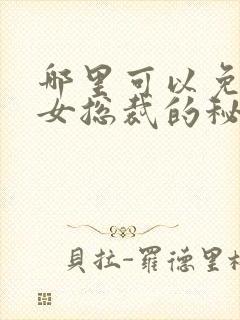 哪里可以免
女总裁的秘
貝拉-羅德里格